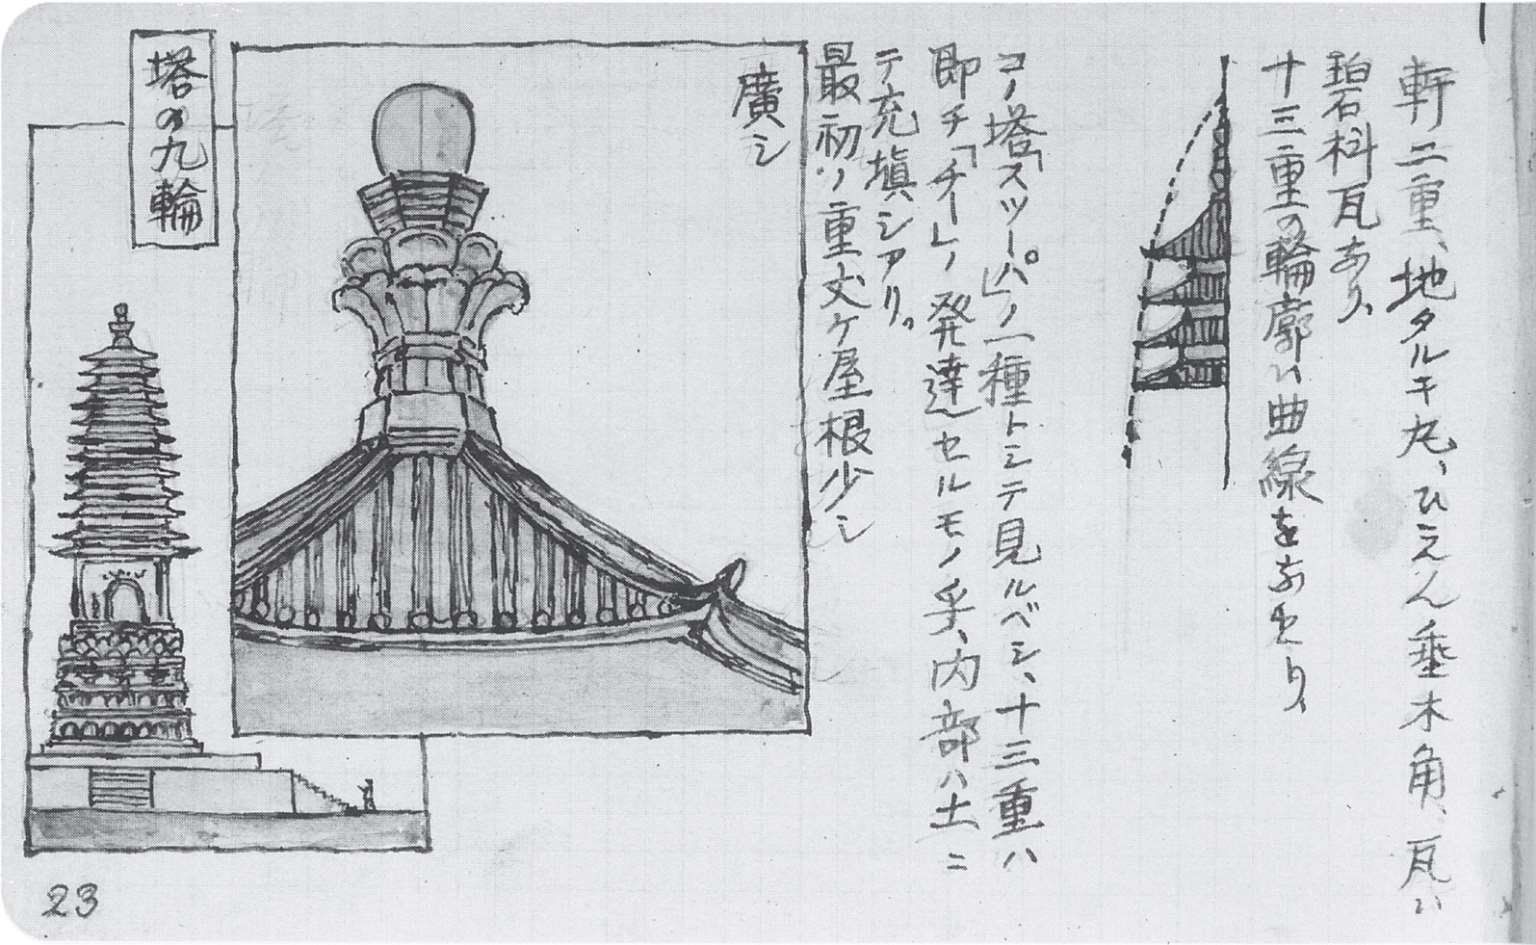 軒二重、地タルキ丸、ひえん垂木角、瓦ハ
碧石料瓦あり、
十三重の輪廓ハ曲線をなせり、
コノ塔「スツーパ」ノ一種トシテ見ルベシ、十三重ハ
即チ「チー」ノ発達セルモノ乎、内部ハ土ニ
テ充塡シアリ。
最初ノ重丈ケ屋根少シ
廣シ
塔の九輪
23